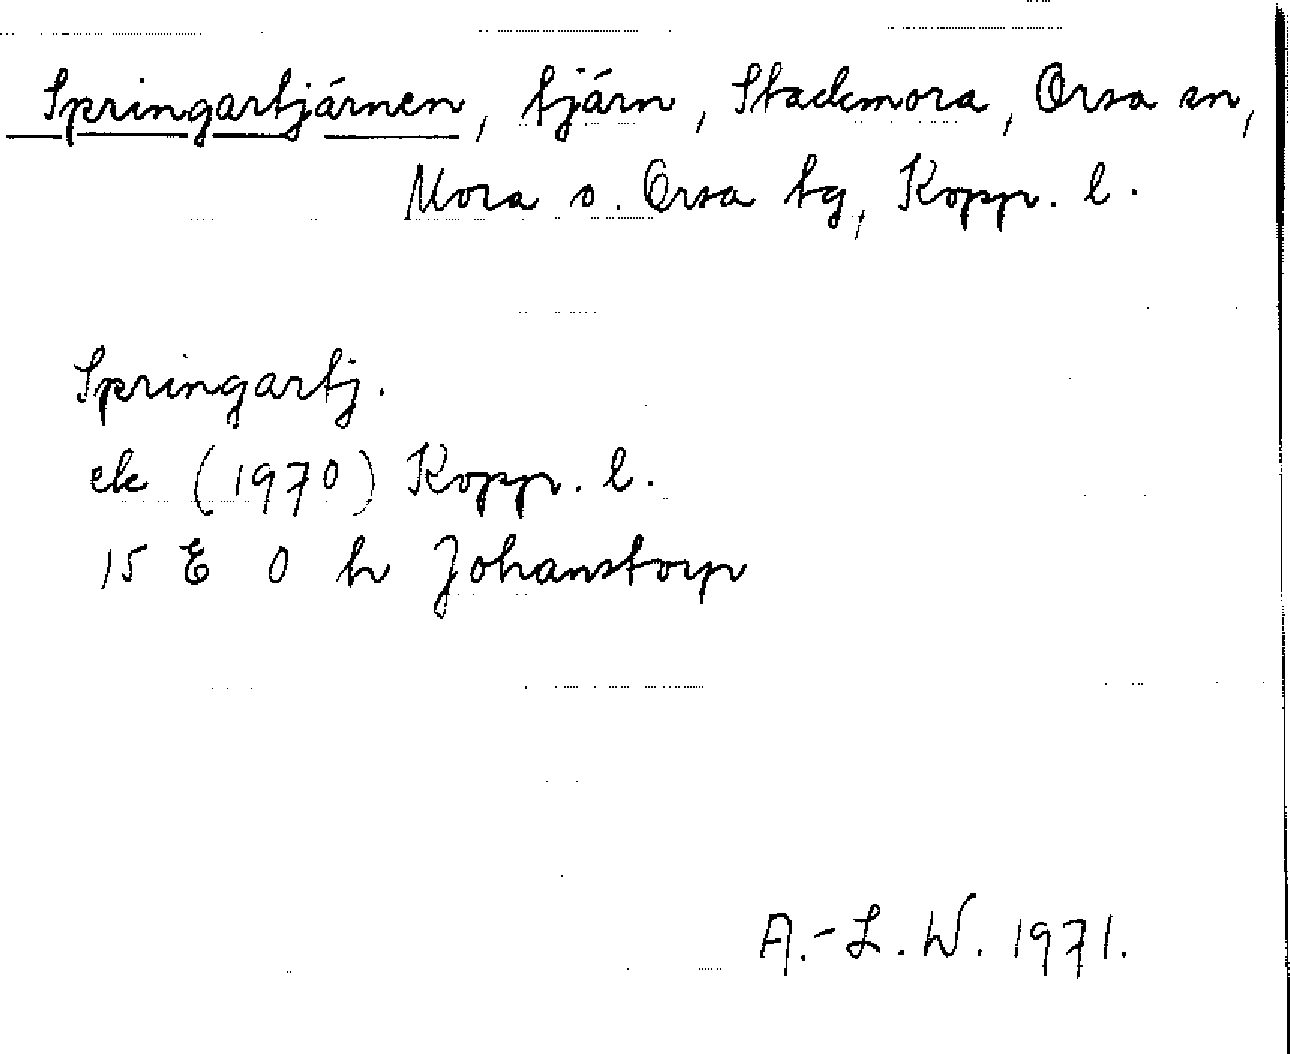 Springartjärnen, tjärn, Stackmora, Orsa sn,
Mora o. Orsa tg, Kopp. l.
Springartj.
ek (1970) Kopp. l.
15 E 0 h Johanstorp
A.-L. W. 1971.